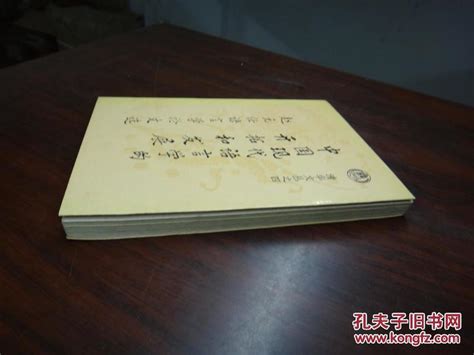 清华文丛之四
中国现代语言学的
开拓和发展
赵元任语言学论文选
孔夫子旧书网
www.kongfz.com